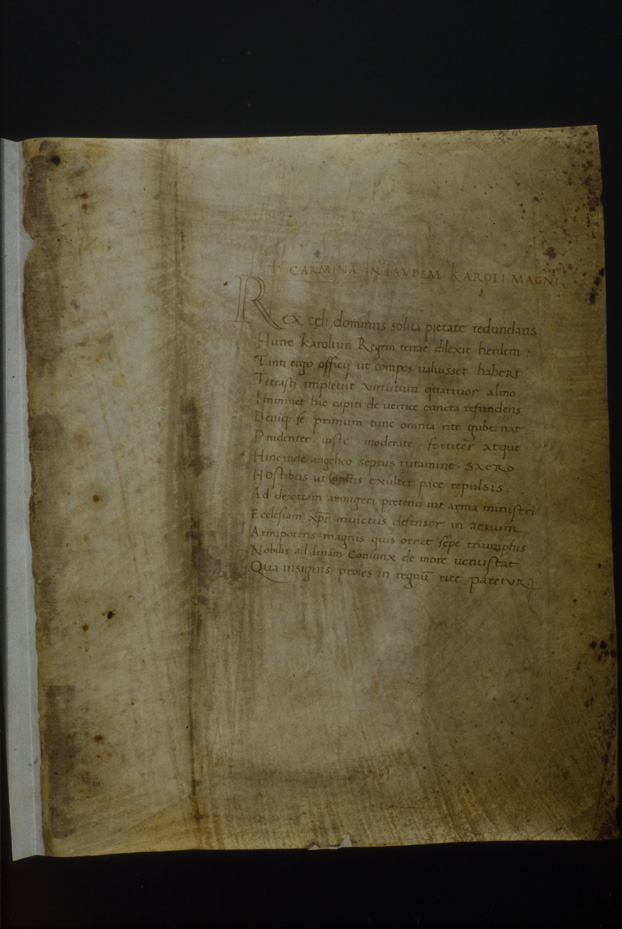 CARMINA IN LAVDEM KAROLI MAGNI
Rex celi dominus solita pietate redundans
Hunc Karolum Regem terrae dilexit herilem:
Tanti ergo officij ut compos ualuisset haberi
Tetrasti impleuit virtutum quattuor almo
Imminet hic capiti de vertice cuncta refundens
Deniq; se primum tunc omnia rite gubernat
Prudenter iuste moderate fortiter atque
Hinc inde angelico septus tutamine SACRO
Hostibus ut cunctis exultet pace repulsis.
Ad dextram armigeri pretendunt arma ministri
Ecclesiam xp̄i inuictus defensor in aeuum
Armipotens magnis quis ornet sępe triumphis
Nobilis ad leuam Coniunx de more uenustat
Qua insignis proles in regnū rite paretur